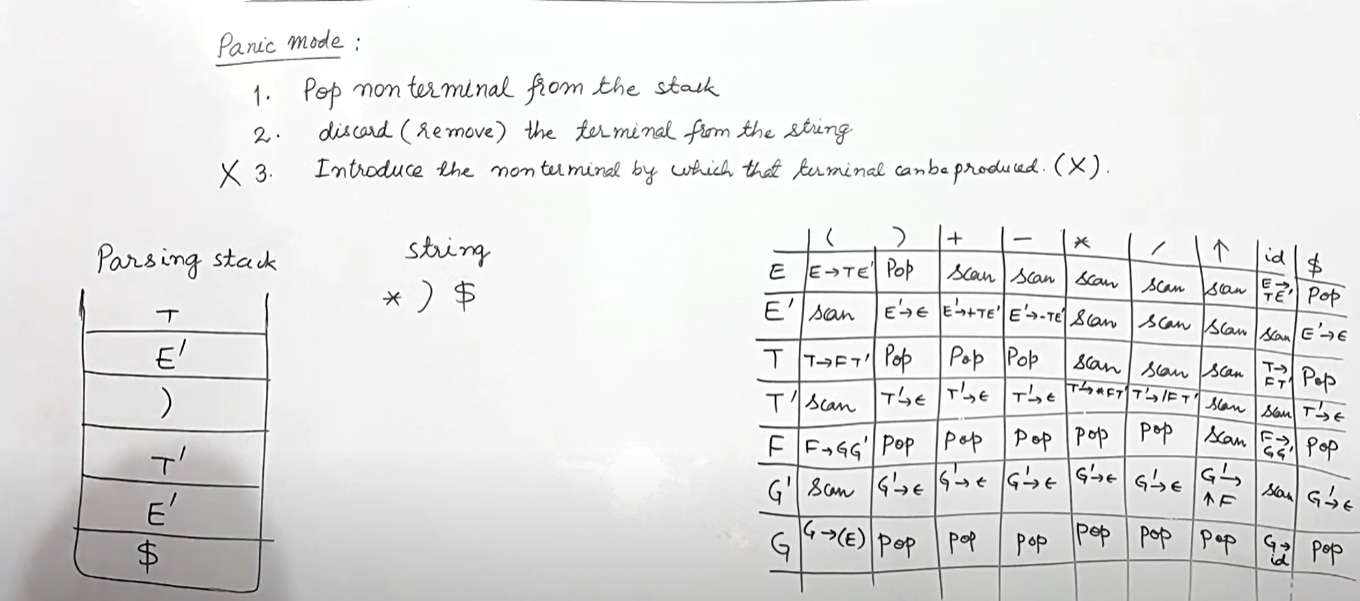 Panic mode :
1. Pop non terminal from the stack
2. discard (remove) the terminal from the string
X 3. Introduce the non terminal by which that terminal can be produced. (X).
Parsing stack
T
E'
)
T'
E'
$
string
* ) $
( ) + - * / ↑ id $
E E→TE' Pop scan scan scan scan scan E→TE' Pop
E' scan E'→ε E'→+TE' E'→-TE' scan scan scan scan E'→ε
T T→FT' Pop Pop Pop scan scan scan T→FT' Pop
T' scan T'→ε T'→ε T'→ε T'→*FT' T'→/FT' scan scan T'→ε
F F→GG' Pop Pop Pop Pop Pop scan F→GG' Pop
G' scan G'→ε G'→ε G'→ε G'→ε G'→ε G'→↑F scan G'→ε
G G→(E) Pop Pop Pop Pop Pop Pop G→id Pop